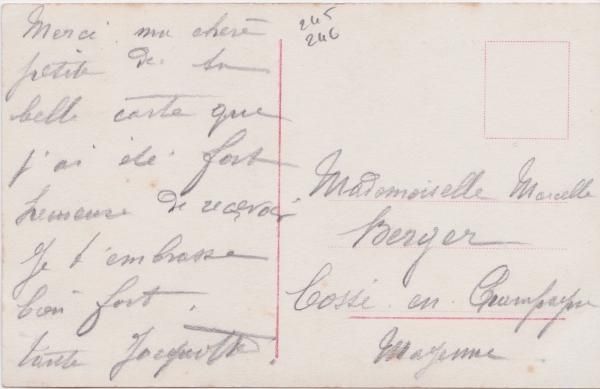 245
246
Merci ma chère
petite de ta
belle carte que
j'ai été fort
heureuse de recevoir
Je t'embrasse
bien fort.
tante Jacquotte
Mademoiselle Marcelle
Berger
Cossé-en-Champagne
Mayenne